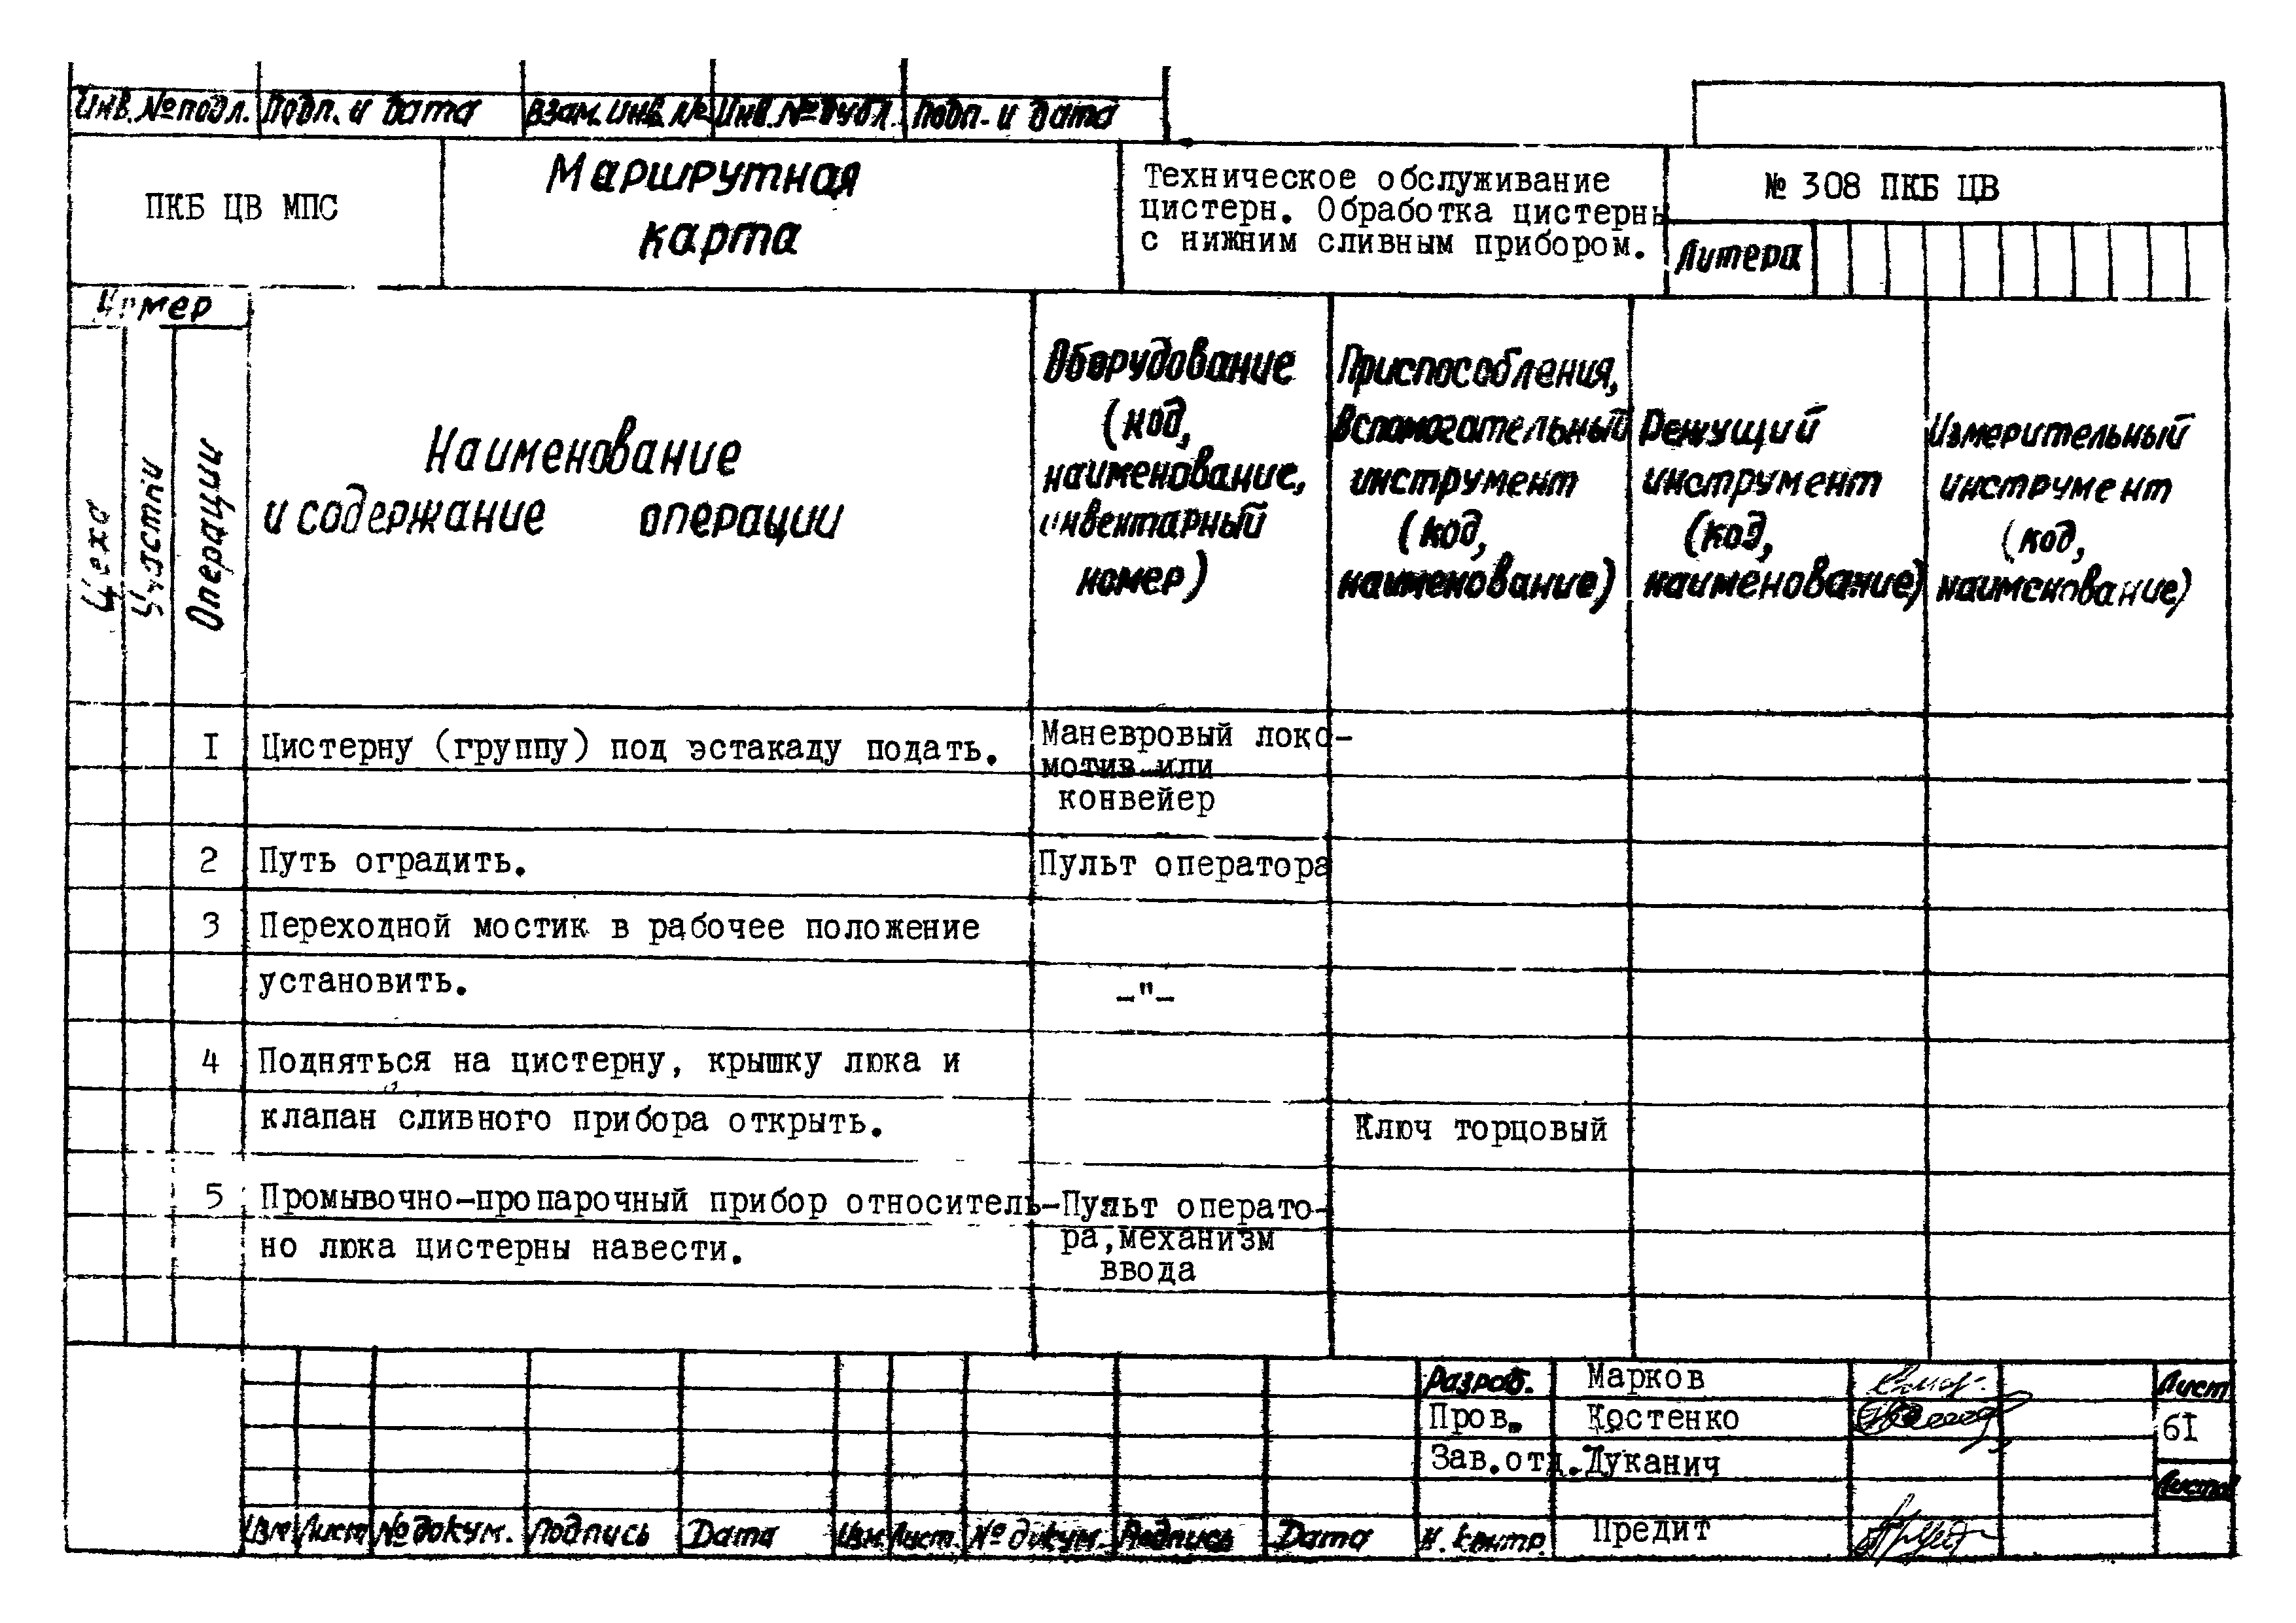 Инв. № подл. Подп. и дата Взам. инв. № Инв. № дубл. Подп. и дата
ПКБ ЦВ МПС
Маршрутная
карта
Техническое обслуживание
цистерн. Обработка цистерны
с нижним сливным прибором.
№ 308 ПКБ ЦВ
Литера
Номер
Цеха
Участки
Операции
Наименование
и содержание операции
Оборудование
(код,
наименование,
инвентарный
номер)
Приспособления,
вспомогательный
инструмент
(код,
наименование)
Режущий
инструмент
(код,
наименование)
Измерительный
инструмент
(код,
наименование)
I Цистерну (группу) под эстакаду подать.
Маневровый локо-
мотив или
конвейер
2 Путь оградить. Пульт оператора
3 Переходной мостик в рабочее положение
установить. -"-
4 Подняться на цистерну, крышку люка и
клапан сливного прибора открыть. Ключ торцовый
5 Промывочно-пропарочный прибор относитель-
но люка цистерны навести.
Пульт операто-
ра, механизм
ввода
Разраб. Марков Лист
Пров. Костенко 6I
Зав.отд. Дуканич
Листов
Изм Лист № докум. Подпись Дата Изм. Лист. № докум. Подпись Дата Н. контр. Предит